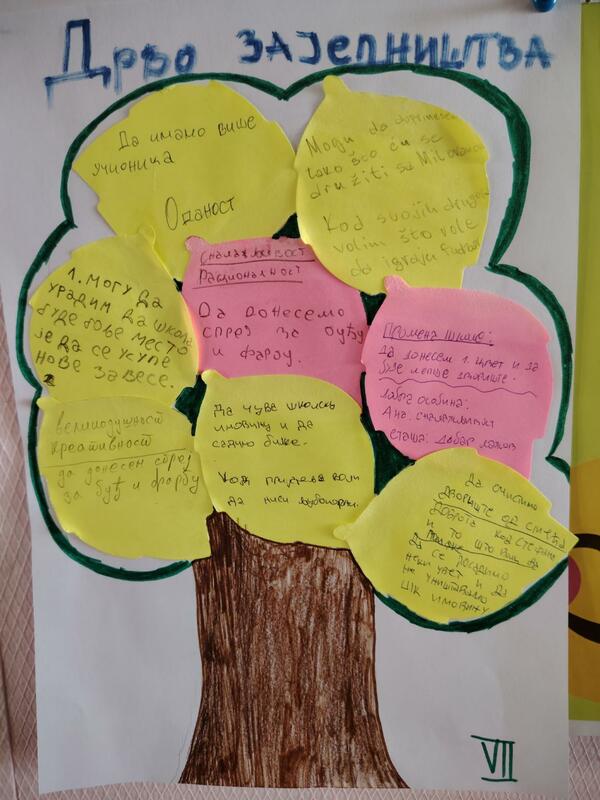 Дрво заједништва
Да имамо више
учионица
Оданост
Mogu da doprinesem
tako što ću se
družiti sa
Kod svojih drugova
volim što vole
da igraju fudbal
сналажљивост
Рационалност
Да донесемо
спреј за буђу
и фарбу.
1. Могу да
урадим да школа
буде боље место
је да се купе
нове завесе.
Промена школе:
да донесем 1. цвет и да
буде лепше двориште.
добра особина:
Ана. сналажљивост
великодушност
креативност
да донесем спреј
за буђ и фарбу
Да чува школску
имовину и да
садимо биљке.
Код
да нису
Да очистимо
двориште од смећа
Доброта код Стефана
и то што воли да
Да се посадимо
неки цвет и да
не уништавамо
шк имовину
VII